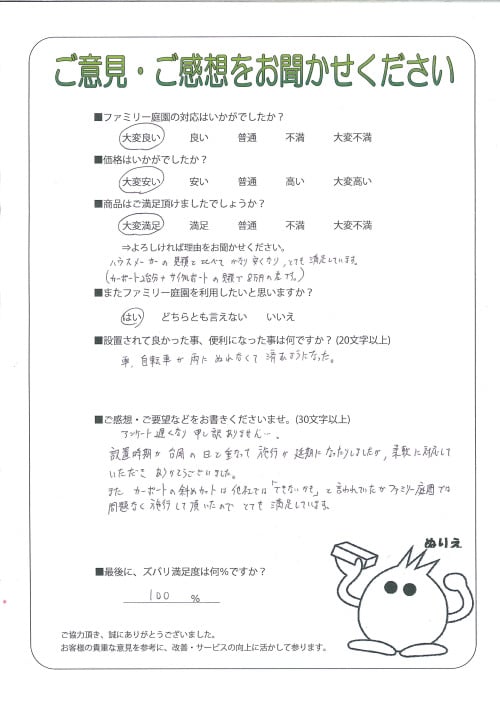 ご意見・ご感想をお聞かせください
■ファミリー庭園の対応はいかがでしたか？
大変良い 良い 普通 不満 大変不満
■価格はいかがでしたか？
大変安い 安い 普通 高い 大変高い
■商品はご満足頂けましたでしょうか？
大変満足 満足 普通 不満 大変不満
⇒よろしければ理由をお聞かせください。
ハウスメーカーの見積と比べて かなり安くなり、とても満足しています。
(カーポート2台分+サイクルポートの見積で8万円の差です。)
■またファミリー庭園を利用したいと思いますか？
はい どちらとも言えない いいえ
■設置されて良かった事、便利になった事は何ですか？(20文字以上)
車、自転車が雨にぬれなくて済むようになった。
■ご感想・ご要望などをお書きくださいませ。(30文字以上)
アンケート遅くなり申し訳ありません…。
設置時期が台風の日と重なって施行が延期になったりしましたが、柔軟に対応して
いただき ありがとうございました。
また カーポートの斜めカットは他社では「できないかも」と言われていたがファミリー庭園では
問題なく施行して頂いたので とても満足しています。
ぬりえ
■最後に、ズバリ満足度は何％ですか？
100 %
ご協力頂き、誠にありがとうございました。
お客様の貴重な意見を参考に、改善・サービスの向上に活かして参ります。